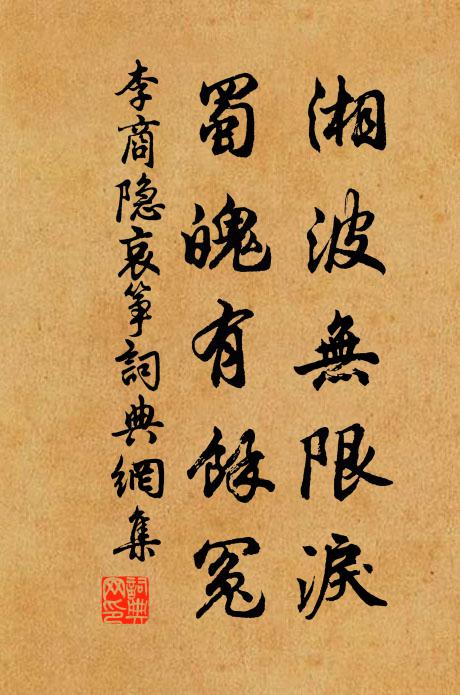 湘波無限淚
蜀魄有餘冤
李商隐哀箏詞典網集
詞典
网印